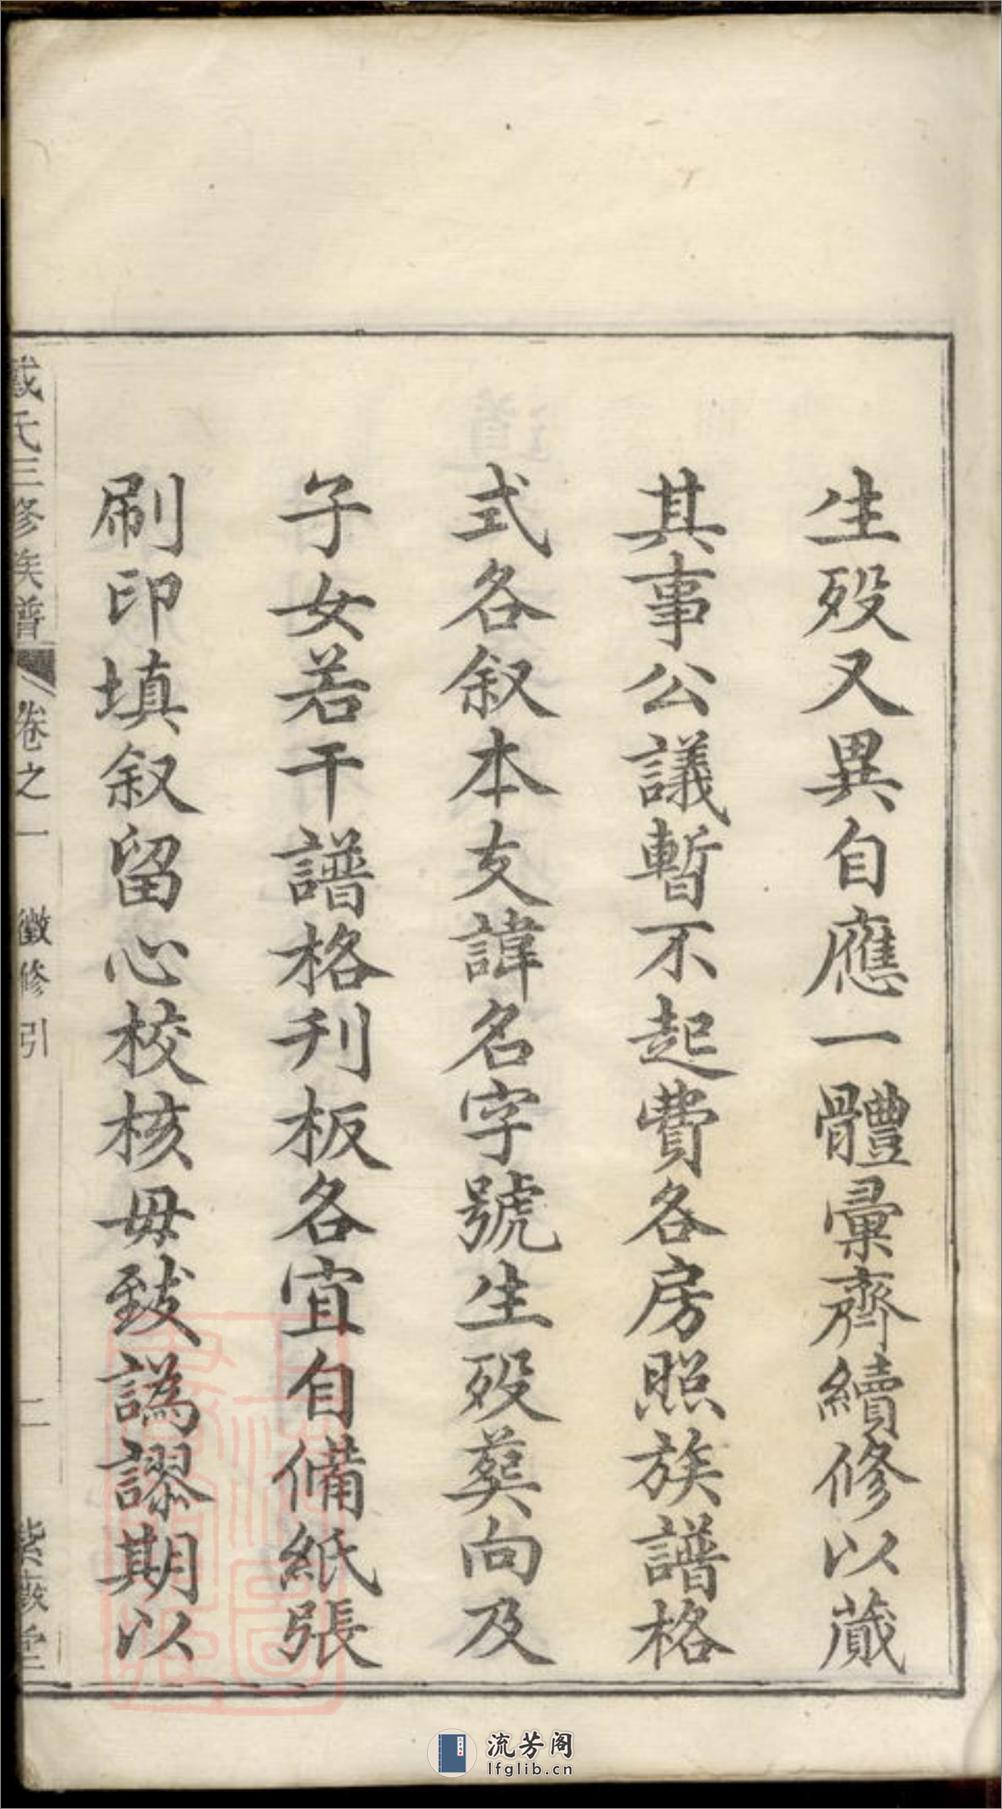 生殁又異自應一體彙齊續修以蕆
其事公議暫不起費各房照族譜格
式各叙本支諱名字號生殁葬向及
子女若干譜格刋板各宜自俻紙張
刷印填叙留心校核毋致譌謬期以
戴氏三修族譜
卷之一
徵修引
二
紫薇堂
流芳阁
lfglib.cn